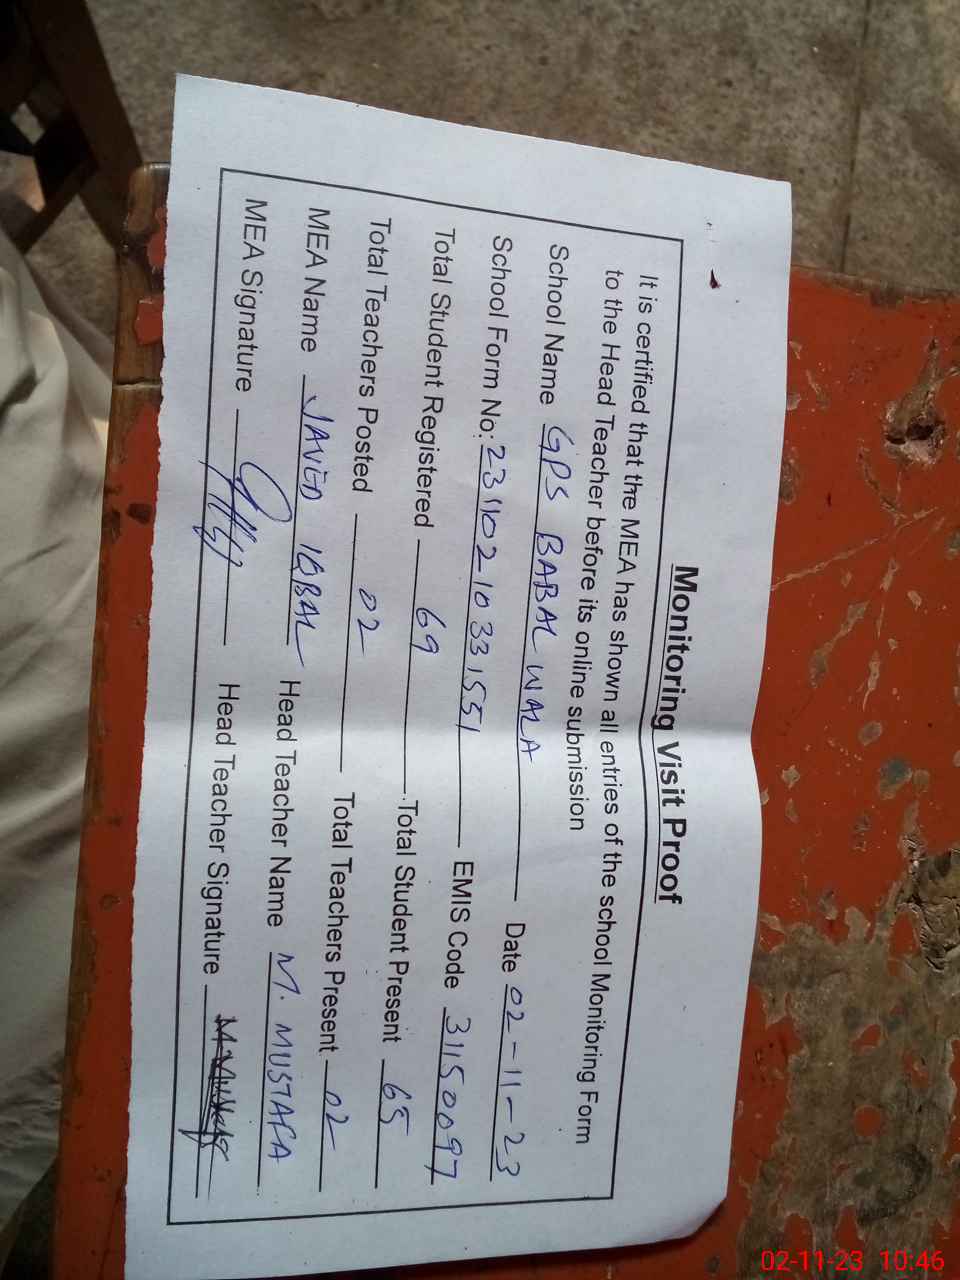 Monitoring Visit Proof
It is certified that the MEA has shown all entries of the school Monitoring Form
to the Head Teacher before its online submission
School Name GPS BABAL WALA Date 02-11-23
School Form No: 23110210331551 EMIS Code 31150097
Total Student Registered 69 Total Student Present 65
Total Teachers Posted 02 Total Teachers Present 02
MEA Name JAVED IQBAL Head Teacher Name M. MUSTAFA
MEA Signature Head Teacher Signature
02-11-23 10:46